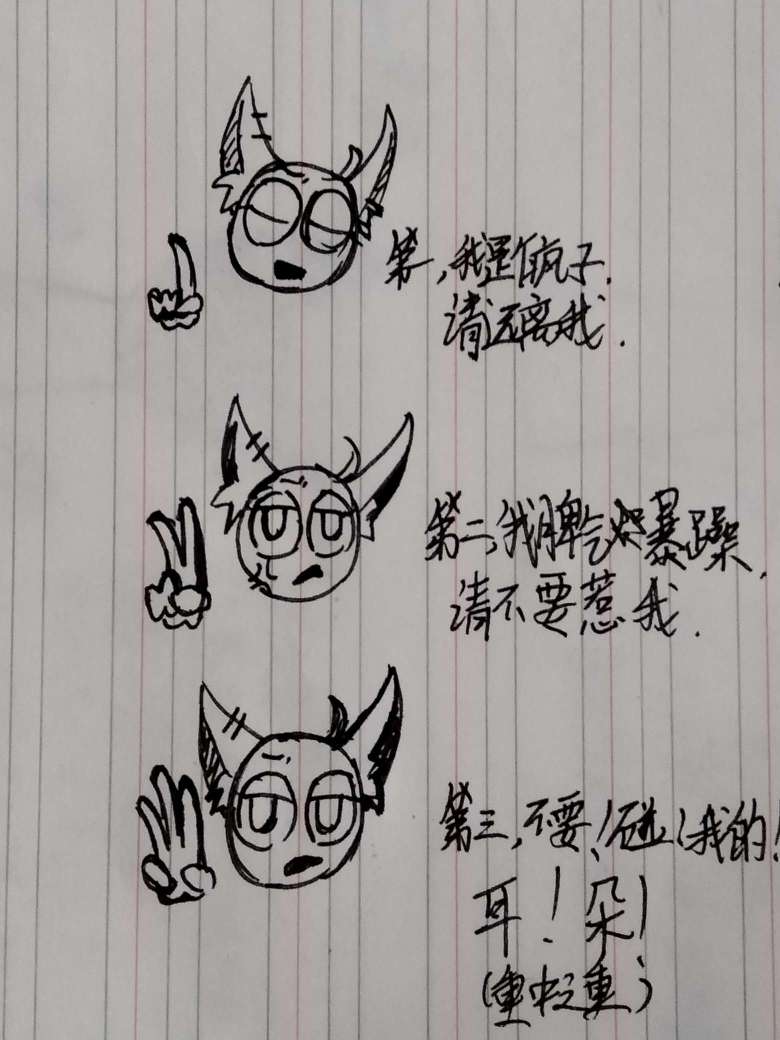 第一,我是個疯子.
请远离我.
第二,我脾气火暴躁,
请不要惹我.
第三,不要!碰!我的!
耳!朵!
(重中之重)